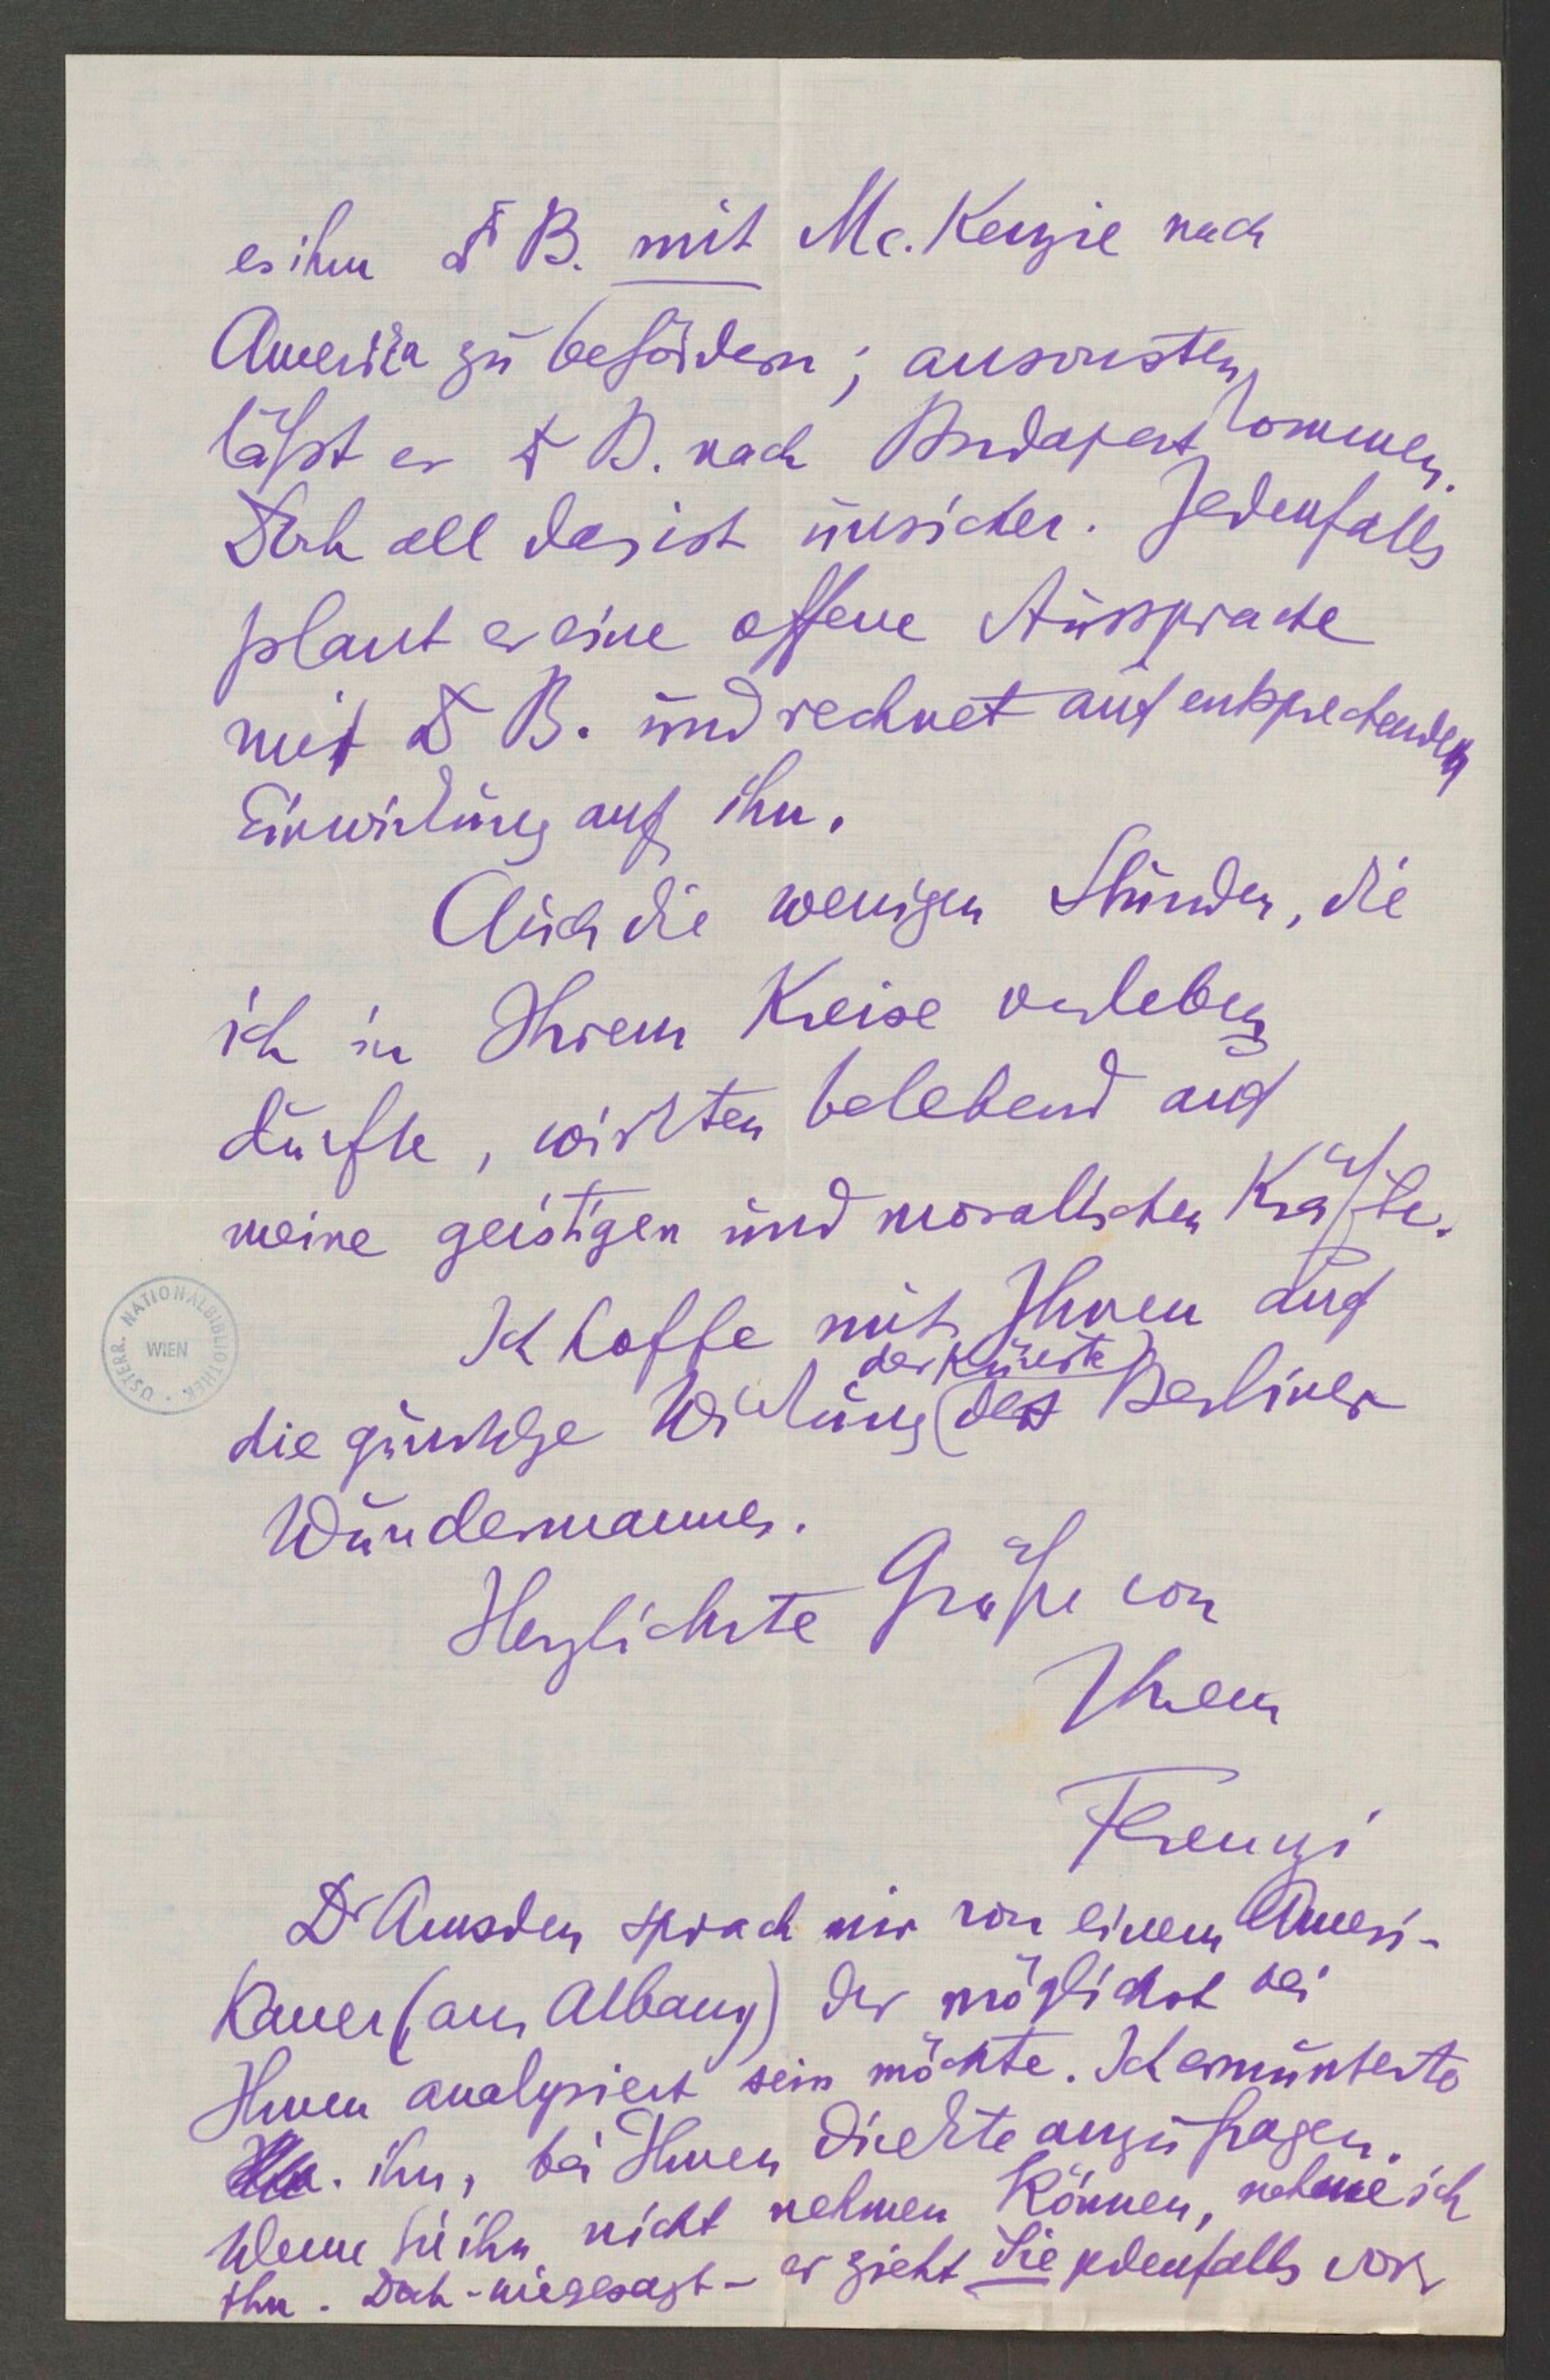 es ihm Dr B. mit Mc. Kenzie nach
Amerika zu befördern; ansonsten
läßt er Dr B. nach Budapest kommen.
Doch all das ist unsicher. Jedenfalls
plant er eine offene Aussprache
mit Dr B. und rechnet auf entsprechenden
Einwirkung auf ihn.
Auch die wenigen Stunden, die
ich in Ihrem Kreise verleben
durfte, wirkten belebend auf
meine geistigen und moralischen Kräfte.
Ich hoffe mit Ihnen auf
die günstige Wirkung (der Künste) des Berliner
Wundermannes.
Herzlichste Grüße von
Ihrem
Ferenczi
Dr Amsden sprach mir von einem Ameri-
kaner (aus Albany) der möglichst bei
Ihnen analysiert sein möchte. Ich ermunterte
ihn, bei Ihnen direkte anzufragen.
Wenn Sie ihn nicht nehmen können, nehme ich
ihn. Doch - wie gesagt - er zieht Sie jedenfalls vor.
ÖSTERR. NATIONALBIBLIOTHEK WIEN